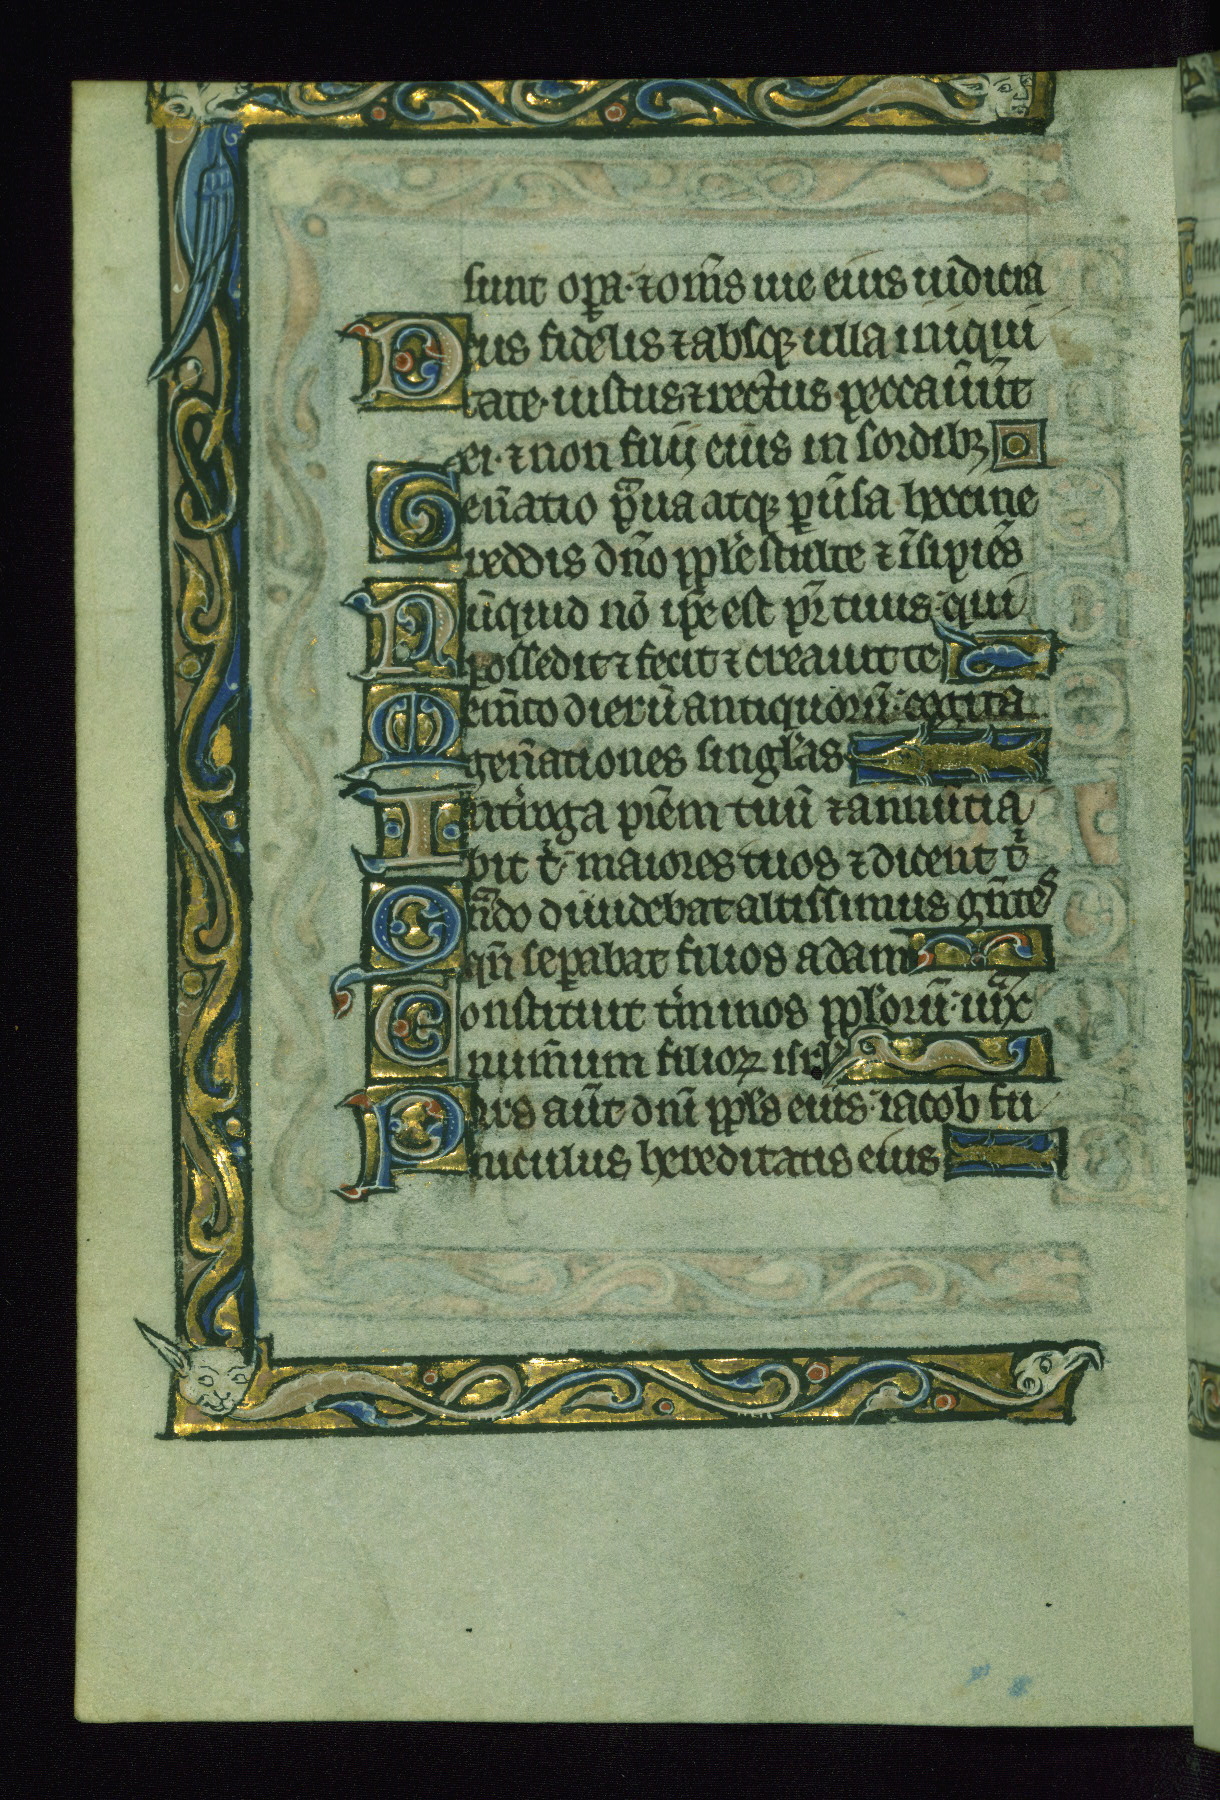 sunt op̱a· ⁊ om̄s uie eius iudicia
Deus fidelis ⁊ absq; ulla iniqui
tate· iustus ⁊ rectus peccau̅u̅t
ei· ⁊ non filij eius in sordib;
Gen̄atio pͣua atq; ꝑu̅sa heccine
reddis dn̄o ppl̄e stulte ⁊ īsipiēs
Nūquid nō ip̄e est pr̄ tuus· qui
possedit ⁊ fecit ⁊ creauit te
Mem̄to dierū antiquorū· cogita
gen̄ationes singl̄as
Int̄roga pr̄em tuū ⁊ annūtia
bit tⁱ· maiores tuos ⁊ dicent tⁱ
Qͣndo diuidebat altissimus gn̄tes
qn̄ seꝑabat filios adam
Constituit t̄minos ppl̄orū· iuxͣ
num̄um filioꝝ isrl̄
Pars aūt dn̄i ppl̄s eius· iacob fu
niculus hereditatis eius